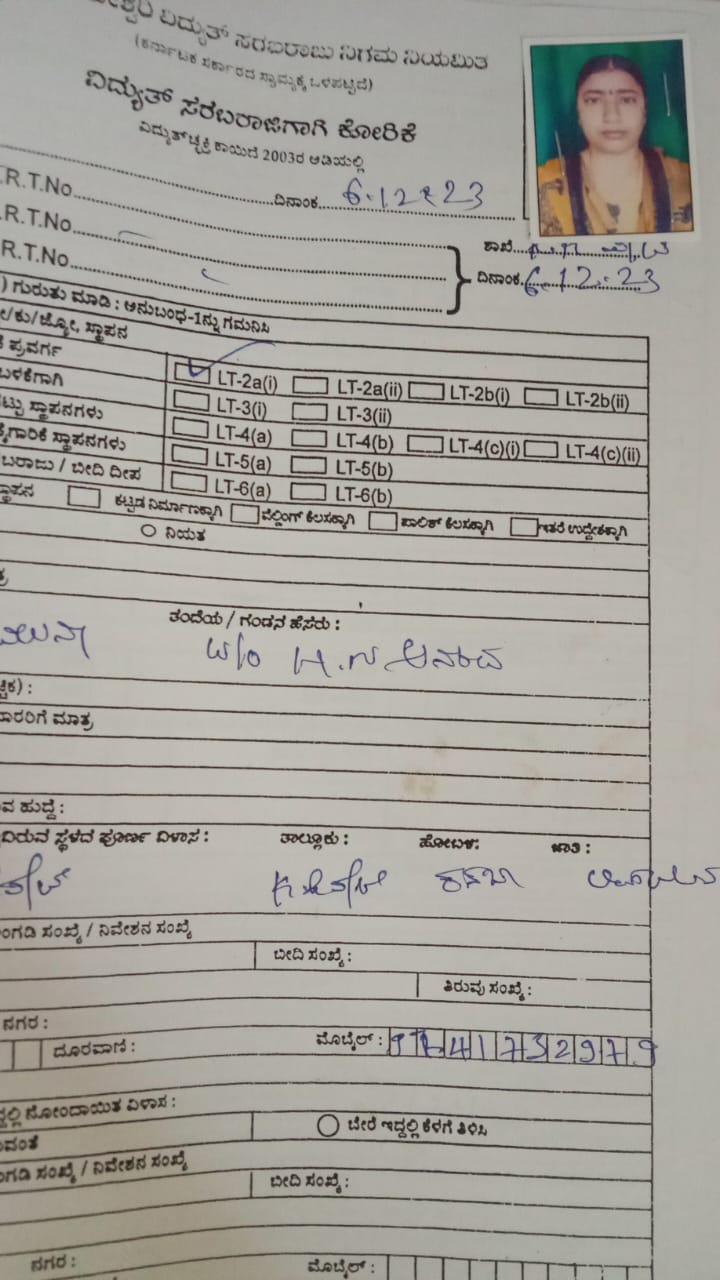 ವಿದ್ಯುತ್ ಸರಬರಾಜು ನಿಗಮ ನಿಯಮಿತ
(ಕರ್ನಾಟಕ ಸರ್ಕಾರದ ಸ್ವಾಮ್ಯಕ್ಕೆ ಒಳಪಟ್ಟಿದೆ)
ವಿದ್ಯುತ್ ಸರಬರಾಜಿಗಾಗಿ ಕೋರಿಕೆ
ವಿದ್ಯುತ್‌ಚ್ಛಕ್ತಿ ಕಾಯಿದೆ 2003ರ ಅಡಿಯಲ್ಲಿ
R.T.No. ದಿನಾಂಕ 6.12.23
R.T.No. ಶಾಖೆ
R.T.No. ದಿನಾಂಕ 6.12.23
) ಗುರುತು ಮಾಡಿ : ಅನುಬಂಧ-1ನ್ನು ಗಮನಿಸಿ
/ಕು/ಜ್ಯೋ, ಸ್ಥಾಪನ
ಪ್ರವರ್ಗ
ಬಳಕೆಗಾಗಿ LT-2a(i) LT-2a(ii) LT-2b(i) LT-2b(ii)
ಸ್ಥಾಪನಗಳು LT-3(i) LT-3(ii)
ಕೈಗಾರಿಕೆ ಸ್ಥಾಪನಗಳು LT-4(a) LT-4(b) LT-4(c)(i) LT-4(c)(ii)
ಬರಾಜು / ಬೀದಿ ದೀಪ LT-5(a) LT-5(b)
LT-6(a) LT-6(b)
ಸ್ಥಾಪನ ಕಟ್ಟಡ ನಿರ್ಮಾಣಕ್ಕಾಗಿ ವೆಲ್ಡಿಂಗ್ ಕೆಲಸಕ್ಕಾಗಿ ಪಾಲಿಶ್ ಕೆಲಸಕ್ಕಾಗಿ ಇತರೆ ಉದ್ದೇಶಕ್ಕಾಗಿ
ನಿಯತ
ತಂದೆಯ / ಗಂಡನ ಹೆಸರು :
W/o H.N
ಚ್ಛಿಕ) :
ದಾರರಿಗೆ ಮಾತ್ರ
ವ ಹುದ್ದೆ :
ವಿರುವ ಸ್ಥಳದ ಪೂರ್ಣ ವಿಳಾಸ : ತಾಲ್ಲೂಕು : ಹೋಬಳಿ: ಜಾತಿ :
ಕಸಬಾ
ಂಗಡಿ ಸಂಖ್ಯೆ / ನಿವೇಶನ ಸಂಖ್ಯೆ
ಬೀದಿ ಸಂಖ್ಯೆ :
ತಿರುವು ಸಂಖ್ಯೆ :
ನಗರ :
ದೂರವಾಣಿ : ಮೊಬೈಲ್ : 9741732979
ದ್ದಲ್ಲಿ ನೋಂದಾಯಿತ ವಿಳಾಸ :
ರುವಂತೆ ಬೇರೆ ಇದ್ದಲ್ಲಿ ಕೆಳಗೆ ತಿಳಿಸಿ
ಂಗಡಿ ಸಂಖ್ಯೆ / ನಿವೇಶನ ಸಂಖ್ಯೆ
ಬೀದಿ ಸಂಖ್ಯೆ :
ನಗರ : ಮೊಬೈಲ್ :